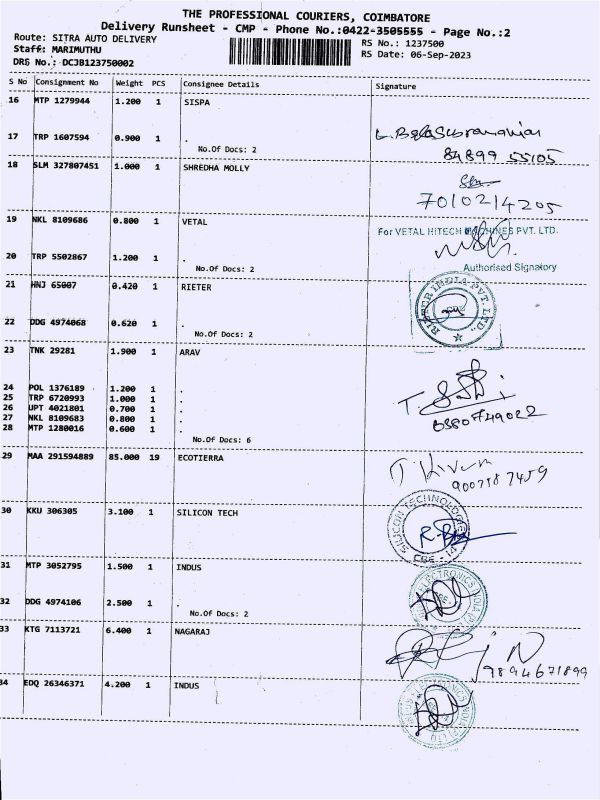 THE PROFESSIONAL COURIERS, COIMBATORE
Delivery Runsheet - CMP - Phone No.:0422-3505555 - Page No.:2
Route: SITRA AUTO DELIVERY
Staff: MARIMUTHU
DRS No.: DCJB123750002
RS No.: 1237500
RS Date: 06-Sep-2023
S No Consignment No Weight PCS Consignee Details Signature
16 MTP 1279944 1.200 1 SISPA
17 TRP 1607594 0.900 1 .
No.Of Docs: 2
L. Balasubramanian
84899 55105
18 SLM 327807451 1.000 1 SHREDHA MOLLY
7010214205
19 NKL 8109686 0.800 1 VETAL
For VETAL HITECH MACHINES PVT. LTD.
20 TRP 5502867 1.200 1 .
No.Of Docs: 2
Authorised Signatory
21 HNJ 65007 0.420 1 RIETER
RIETER INDIA PVT. LTD.
22 DDG 4974068 0.620 1 .
No.Of Docs: 2
23 TNK 29281 1.900 1 ARAV
24 POL 1376189 1.200 1 .
25 TRP 6720993 1.000 1 .
26 UPT 4021801 0.700 1 .
27 NKL 8109683 0.800 1 .
28 MTP 1280016 0.600 1 .
No.Of Docs: 6
29 MAA 291594889 85.000 19 ECOTIERRA
9007587459
30 KKU 306305 3.100 1 SILICON TECH
SILICON TECHNOLOGIES
CBE - 14
31 MTP 3052795 1.500 1 INDUS
32 DDG 4974106 2.500 1 .
No.Of Docs: 2
33 KTG 7113721 6.400 1 NAGARAJ
9894671899
34 EDQ 26346371 4.200 1 INDUS